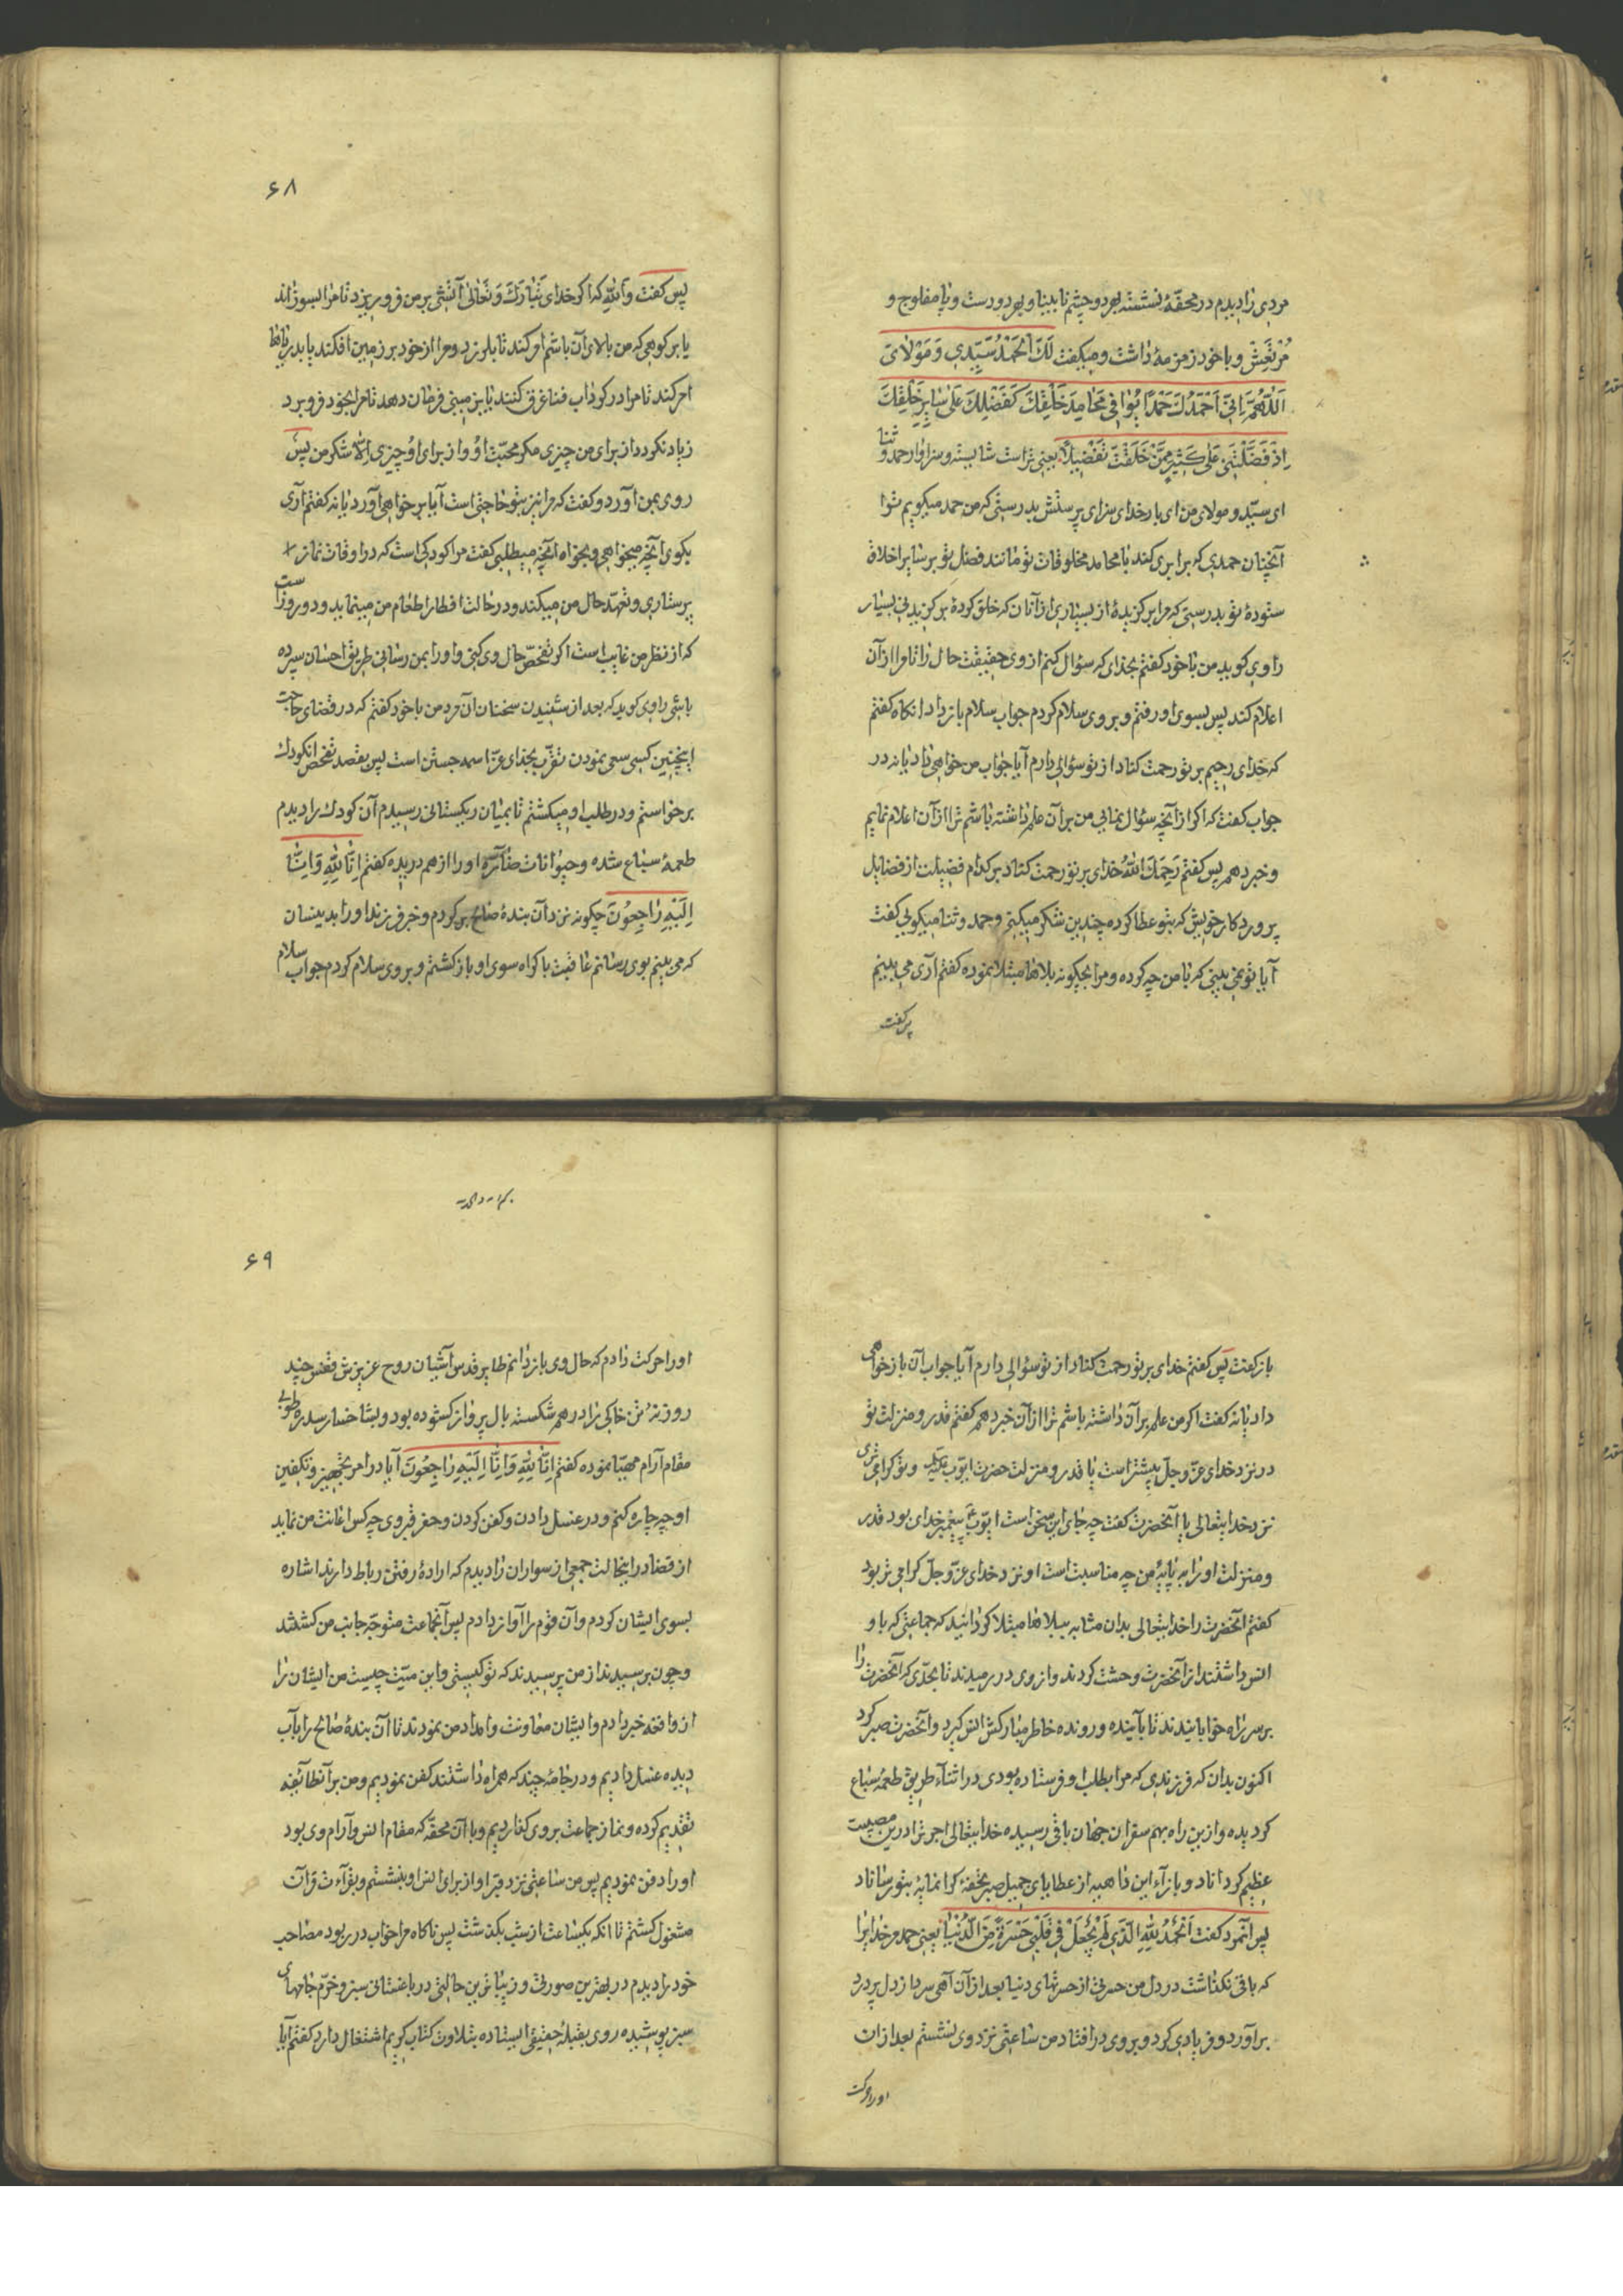 مردی را دیدم در محفّهٔ نشسته بهر دو چشم نابینا و بهر دو دست و پا مفلوج و
مُرْتَعِشْ و با خود زمزمهٔ داشت و میکفت لَكَ الْحَمْدُ سَیِّدِی وَ مَوْلٰایَ
اَللّٰهُمَّ اِنّٖی اَحْمَدُكَ حَمْدًا یُوٰافِی مَحٰامِدَ خَلْقِكَ كَفَضْلِكَ عَلیٰ سٰایِرِ خَلْقِكَ
اِذْ فَضَّلْتَنِی عَلیٰ كَثِیرٍ مِمَّنْ خَلَقْتَ تَفْضِیلًا یعنی تراست شایسته و سزاوار حمد و ثنا
ای سیّد و مولای من ای بار خدای سزای پرستش بدرستی که من حمد میکویم ترا
آنچنان حمدی که برابری کند با محامد مخلوقات تو مانند فضل تو بر سایر اخلاق
ستودهٔ تو بدرستی که مرا برکزیدهٔ از بسیاری از آنان که خلق کردهٔ برکزیدنی بسیار
راوی کوید من با خود کفتم بخدای که سؤال کنم از وی حقیقت حال را تا مرا از آن
اعلام کند پس بسوی او رفتم و بر وی سلام کردم جواب سلام باز داد آنکاه کفتم
که خدای رحیم بر تو رحمت کناد از تو سؤالی دارم آیا جواب من خواهی داد یا نه در
جواب کفت که اکر از آنچه سؤال نمائی من بر آن علم داشته باشم ترا از آن اعلام نمایم
و خبر دهم پس کفتم رَحِمَكَ اللّٰهُ خدای بر تو رحمت کناد بر کدام فضیلت از فضایل
پروردکار خویش که بتو عطا کرده چندین شکر میکنی و حمد و ثنا میکوئی کفت
آیا تو نمی بینی که با من چه کرده و مرا بچکونه بلاها مبتلا نموده کفتم آری می بینم
پس کفت
۶۸
پس کفت واللّٰه که اکر خدای تَبٰارَكَ وَ تَعٰالیٰ آتشی بر من فرو ریزد تا مرا بسوزاند
یا بر کوهی که من بالای آن باشم امر کند تا بلرزد و مرا از خود بر زمین افکند یا بدریاها
امر کند تا مرا در کرداب فنا غرق کنند یا بزمینی فرمان دهد تا مرا بخود فرو برد
زیاد نکردد از برای من چیزی مکر محبّت او و از برای او چیزی اِلّا شکر من پس
روی بمن آورد و کفت که مرا نیز بتو حاجتی است آیا بر خواهی آورد یا نه کفتم آری
بکوی آنچه میخواهی و بخواه آنچه میطلبی کفت مرا کودکی است که در اوقات نماز
پرستاری و تعهّد حال من میکند و در حالت افطار اطعام من مینماید و دو روز است
که از نظر من غایب است اکر تفحّص حال وی کنی و او را بمن رسانی طریق احسان سپرده
باشی راوی کوید که بعد از شنیدن سخنان آن مرد من با خود کفتم که در قضای حاجت
اینچنین کسی سعی نمودن تقرّب بخدای عزّ اسمه جستن است پس بقصد تفحص آنکودك
برخواستم و در طلب او میکشتم تا بمیان ریکستانی رسیدم آن کودك را دیدم
طعمهٔ سباع شده و حیوانات ضارّه او را از هم دریده کفتم اِنّٰا لِلّٰهِ وَ اِنّٰا
اِلَیْهِ رٰاجِعُونَ چکونه نزد آن بندهٔ صالح بر کردم و خبر فرزند او را بدینسان
که می بینم بوی رسانم عاقبت با کراه سوی او باز کشتم و بر وی سلام کردم جواب سلام
باز کفت پس کفتم خدای بر تو رحمت کناد از تو سؤالی دارم آیا جواب آن باز خواهی
داد یا نه کفت اکر من علم بر آن داشته باشم ترا از آن خبر دهم کفتم قدر و منزلت تو
در نزد خدای عزّ و جلّ بیشتر است یا قدر و منزلت حضرت ایّوب و تو کرامی تری
نزد خدایتعالی یا آنحضرت کفت چه جای این سخن است ایّوب پیغمبر خدای بود قدر
و منزلت او را به پایهٔ من چه مناسبت است او نزد خدای عزّ و جلّ کرامی تر بود
کفتم آنحضرت را خدایتعالی بدان مثابه ببلاها مبتلا کردانید که جماعتی که با و
انس داشتند از آنحضرت وحشت کردند و از وی در رمیدند تا بحدّی که آنحضرت را
بر سر راه خوابانیدند تا بآینده و رونده خاطر مبارکش انس کیرد و آنحضرت صبر کرد
اکنون بدان که فرزندی که مرا بطلب او فرستاده بودی در اثنآء طریق طعمهٔ سباع
کردیده و ازین راه بهم سفران جهان باقی رسیده خدایتعالی اجر ترا درین مصیبت
عظیم کرداناد و بازآء این داهیه از عطایای جمیل صبر تحفهٔ کرانمایه بتو رساناد
پس آنمرد کفت اَلْحَمْدُ لِلّٰهِ الَّذِی لَمْ یَجْعَلْ فِی قَلْبِی حَسْرَةً مِنَ الدُّنْیٰا یعنی حمد مر خدایرا
که باقی نکذاشت در دل من حسرتی از حسرتهای دنیا بعد از آن آهی سرد از دل پر درد
برآورد و فریادی کرد و بر وی در افتاد من ساعتی نزد وی نشستم بعد از آن
او را حرکت
۶۹
او را حرکت دادم که حال وی باز دانم طایر قدس آشیان روح عزیزش قفس چند
روزنهٔ تن خاکی را در هم شکسته بال پرواز کشوده بود و بشاخسار سدره طوبی
مقام آرام مهیّا نموده کفتم اِنّٰا لِلّٰهِ وَ اِنّٰا اِلَیْهِ رٰاجِعُونَ آیا در امر تجهیز و تکفین
او چه چاره کنم و در غسل دادن و کفن کردن و حفر قبر وی چه کس اعانت من نماید
از قضا در اینحالت جمعی از سواران را دیدم که ارادهٔ رفتن رباط دارند اشاره
بسوی ایشان کردم و آن قوم را آواز دادم پس آنجماعت متوجّه جانب من کشتند
و چون برسیدند از من پرسیدند که تو کیستی و این میّت چیست من ایشان را
از واقعه خبر دادم و ایشان معاونت و امداد من نمودند تا آن بندهٔ صالح را بآب
دیده غسل دادیم و در جامهٔ چند که همراه داشتند کفن نمودیم و من بر آنطائفه
تقدیم کرده و نماز جماعت بر وی کذاردیم و با آن محفّه که مقام انس و آرام وی بود
او را دفن نمودیم پس من ساعتی نزد قبر او از برای انس او بنشستم و بقرآءت قرآن
مشغول کشتم تا آنکه یکساعت از شب بکذشت پس ناکاه مرا خواب در ربود مصاحب
خود را دیدم در بهترین صورتی و زیباترین حالتی در باغستانی سبز و خرّم جامهای
سبز پوشیده روی بقبلهٔ حقیقی ایستاده بتلاوت کتاب کریم اشتغال دارد کفتم آیا